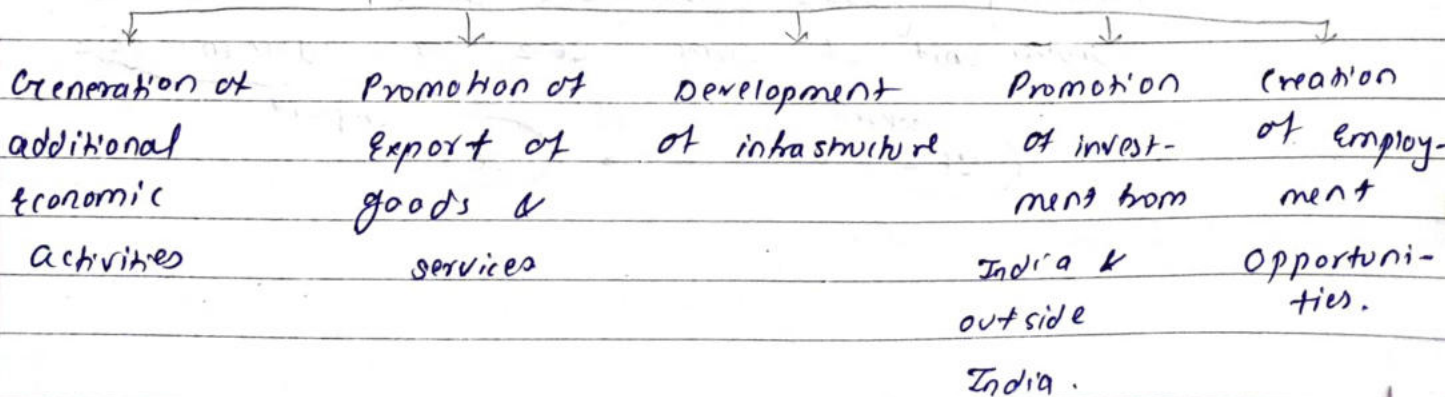 Generation of
additional
Economic
Activities
Promotion of
Export of
goods &
services
Development
of infrastructure
Promotion
of invest-
ment from
India &
outside
India.
Creation
of Employ-
ment
Opportuni-
ties.